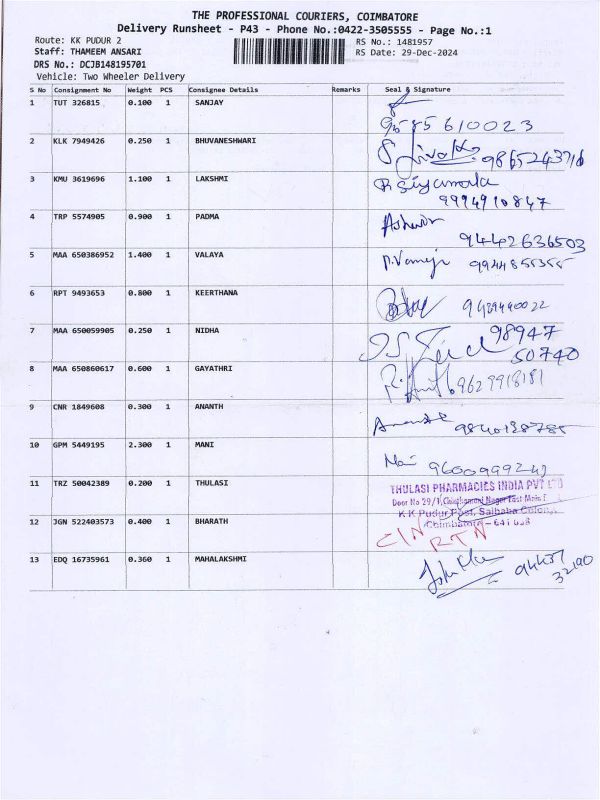 THE PROFESSIONAL COURIERS, COIMBATORE
Delivery Runsheet - P43 - Phone No.:0422-3505555 - Page No.:1
Route: KK PUDUR 2
RS No.: 1481957
Staff: THAMEEM ANSARI
RS Date: 29-Dec-2024
DRS No.: DCJB148195701
Vehicle: Two Wheeler Delivery
S No Consignment No Weight PCS Consignee Details Remarks Seal & Signature
1 TUT 326815 0.100 1 SANJAY
9585610023
2 KLK 7949426 0.250 1 BHUVANESHWARI
9865243716
3 KMU 3619696 1.100 1 LAKSHMI R Siyamala
9994910847
4 TRP 5574905 0.900 1 PADMA Ashwin
9442636503
5 MAA 650386952 1.400 1 VALAYA
9944855355
6 RPT 9493653 0.800 1 KEERTHANA
7 MAA 650059905 0.250 1 NIDHA 98947
50740
8 MAA 650860617 0.600 1 GAYATHRI
9629918181
9 CNR 1849608 0.300 1 ANANTH
10 GPM 5449195 2.300 1 MANI
Mani
11 TRZ 50042389 0.200 1 THULASI THULASI PHARMACIES INDIA PVT LTD
Door No 29/1, East Main
K K Pudur Post, Saibaba Colony,
Coimbatore - 641 038
12 JGN 522403573 0.400 1 BHARATH
C/N RTN
13 EDQ 16735961 0.360 1 MAHALAKSHMI
94437
32190